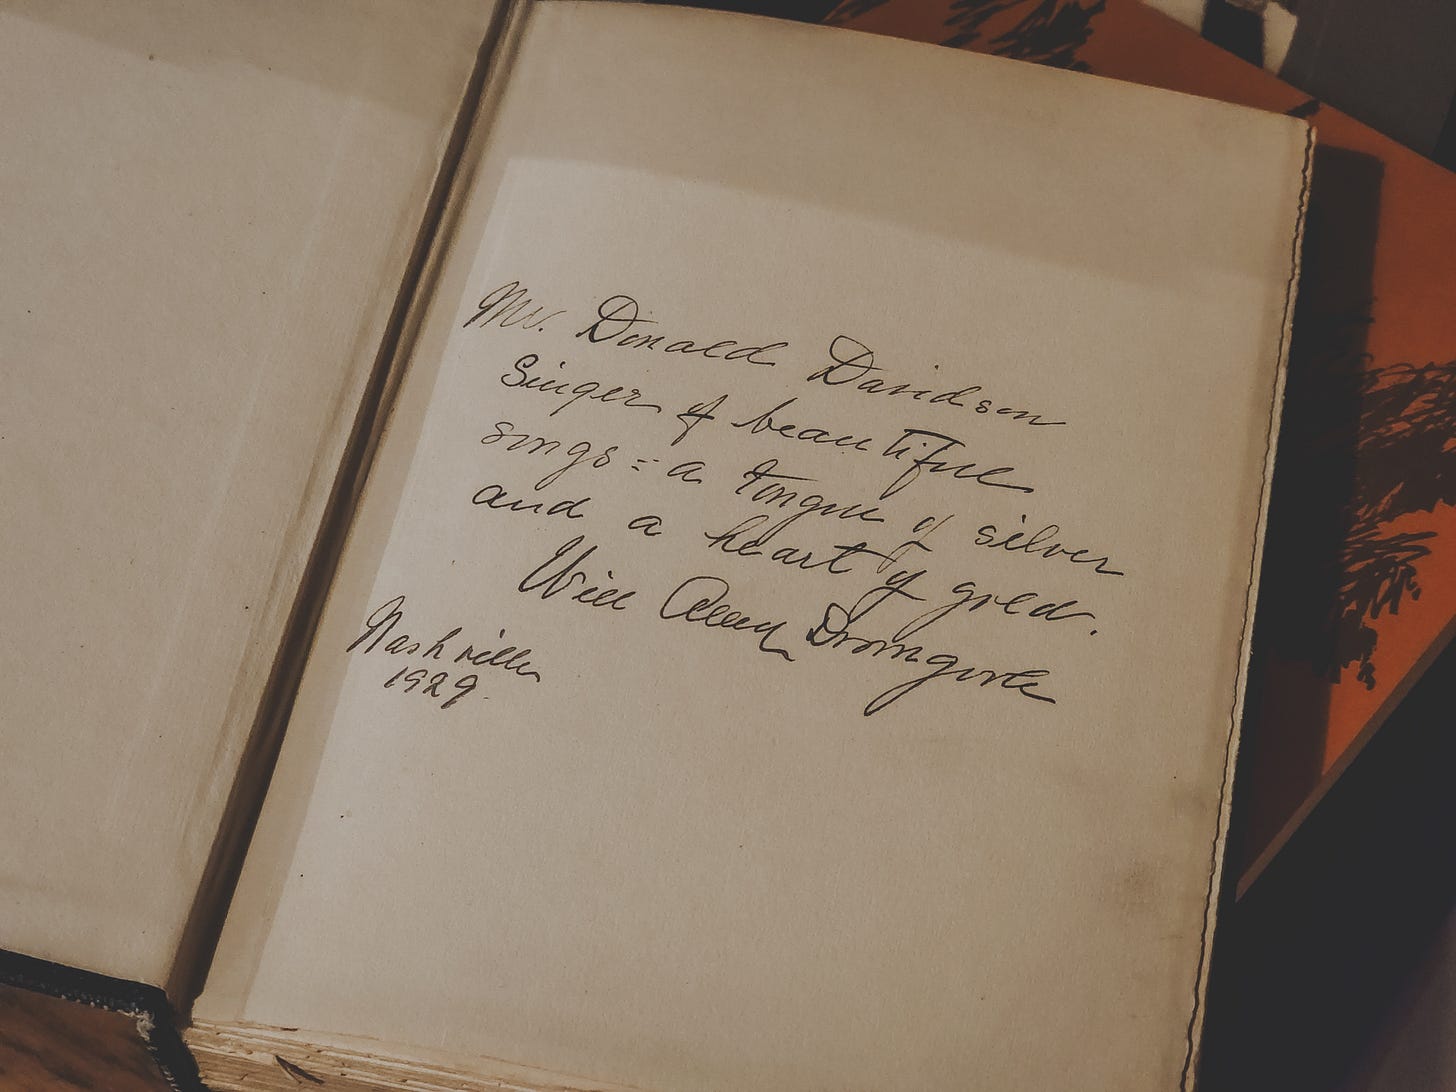 Mr. Donald Davidson
Singer of beautiful
songs = a tongue of silver
and a heart of gold.
Will Allen Dromgoole
Nashville
1929.